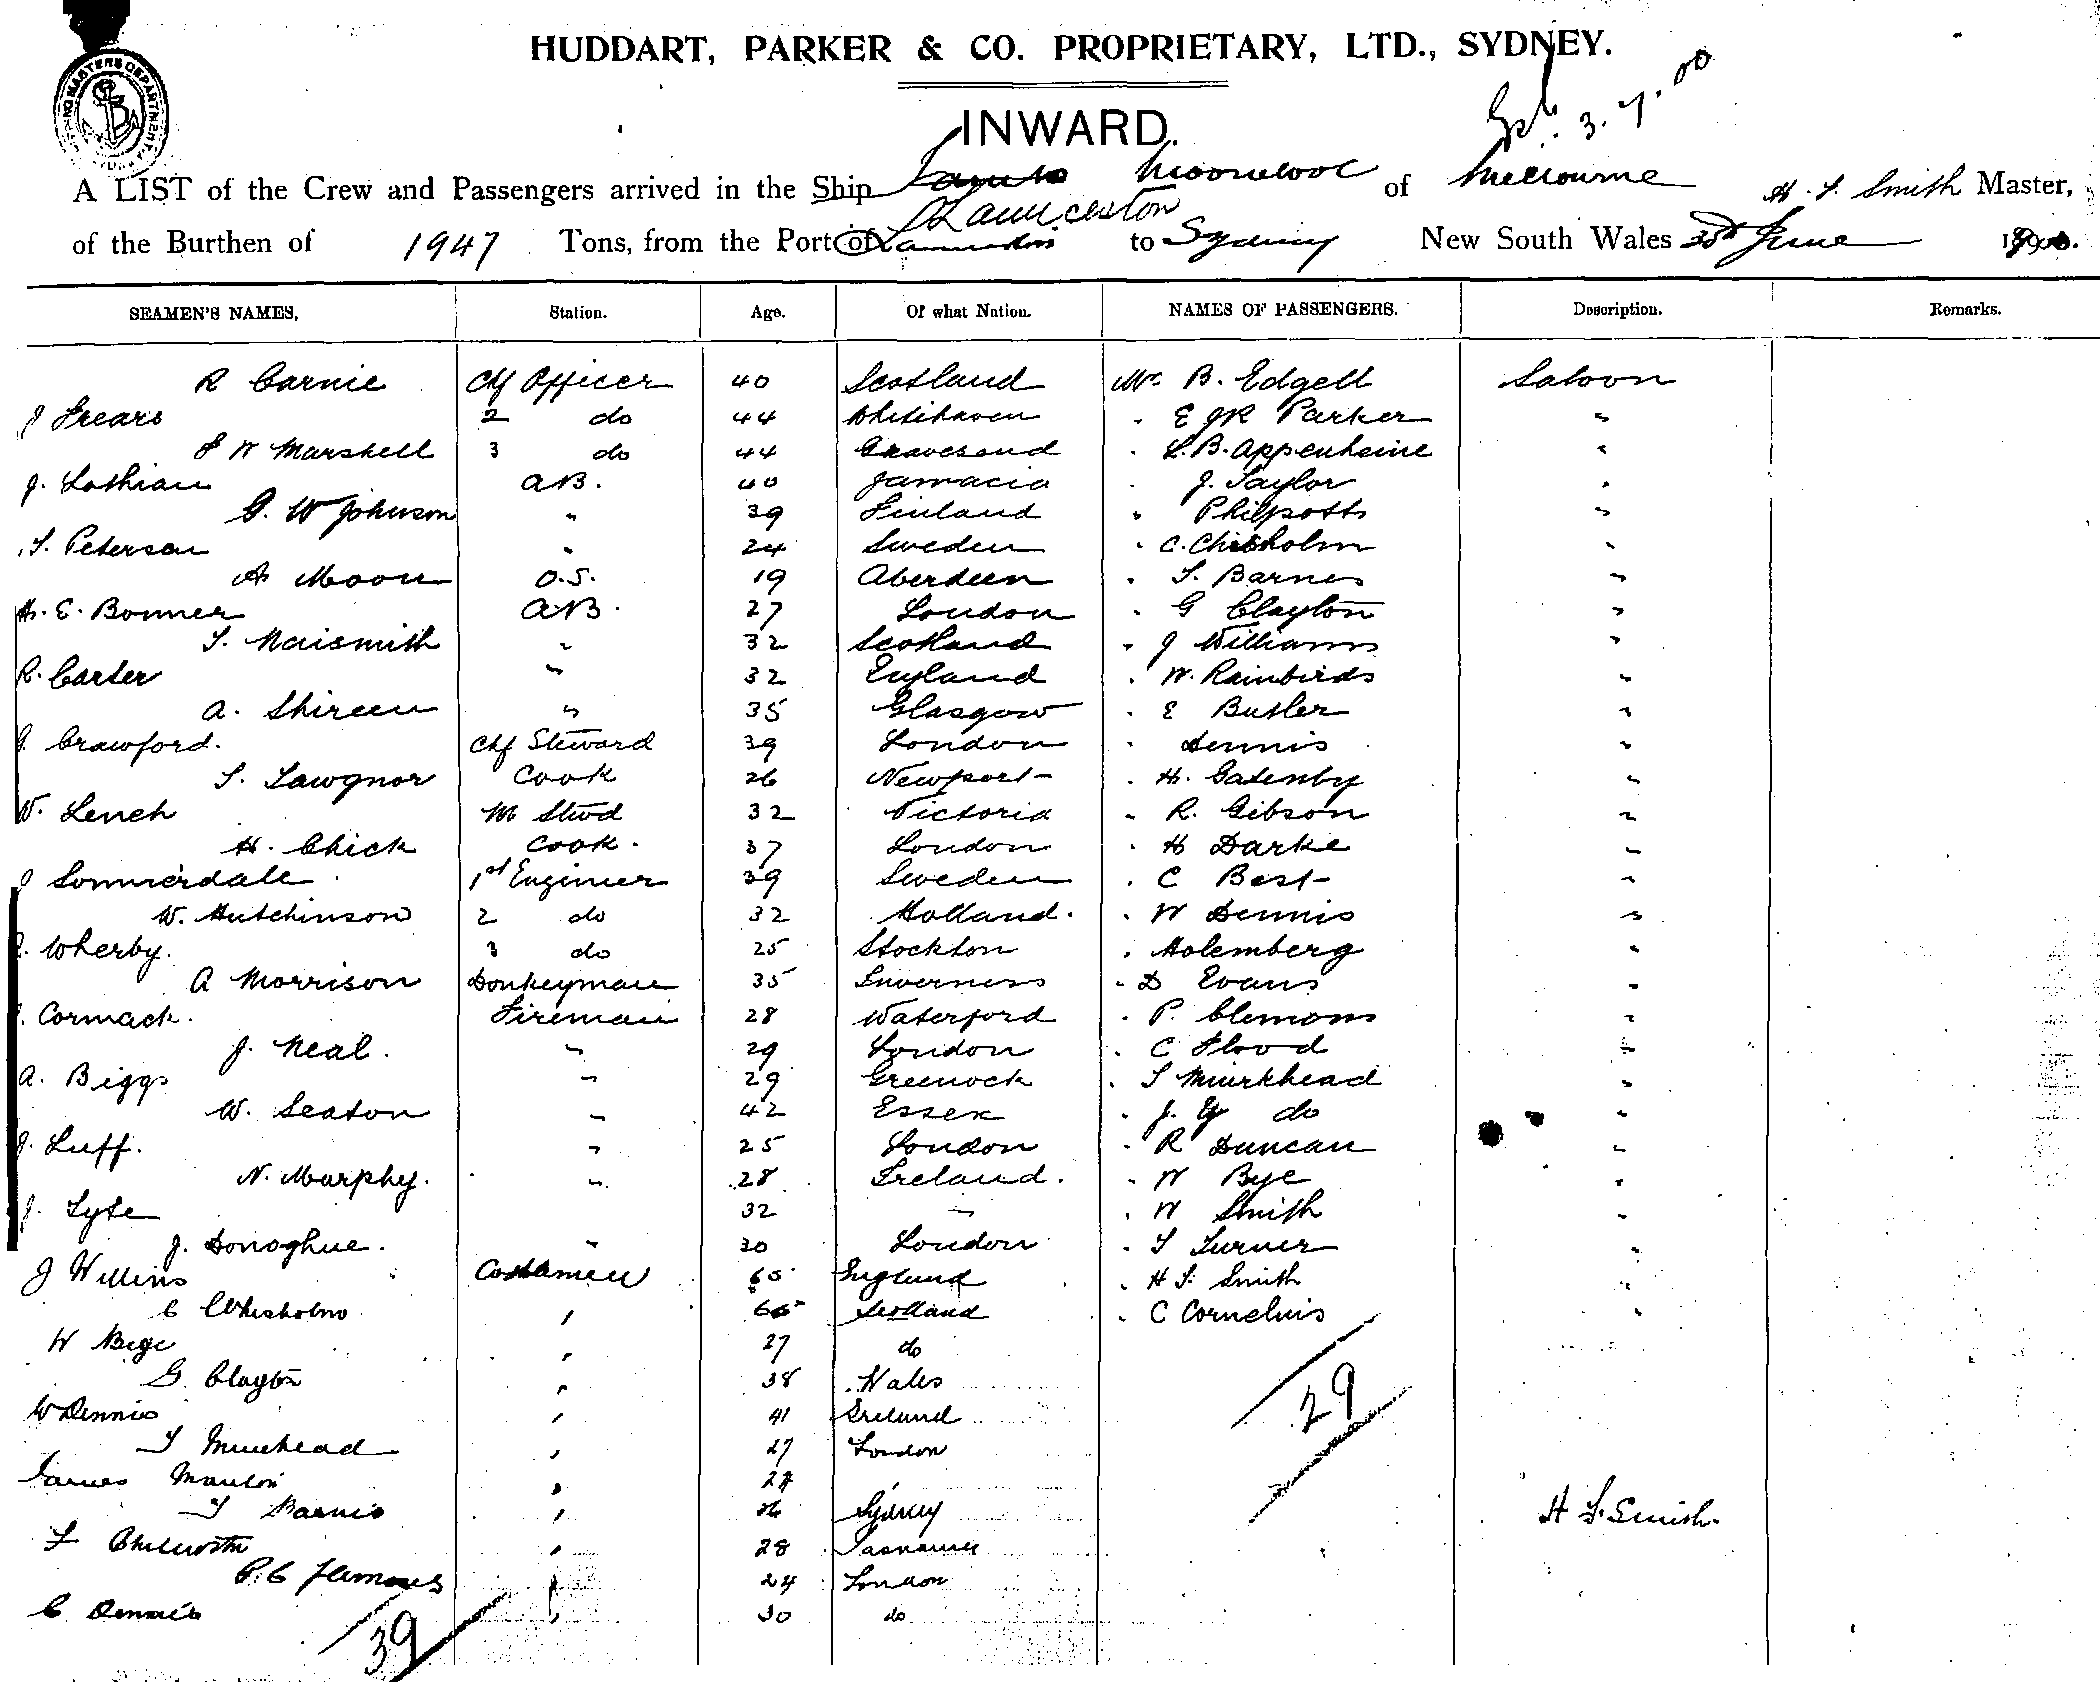 HUDDART, PARKER & CO. PROPRIETARY, LTD., SYDNEY.
INWARD.
3.7.00
A LIST of the Crew and Passengers arrived in the Ship Moonetool of Melbourne H. S. Smith Master,
Launceston
of the Burthen of 1947 Tons, from the Port of to Sydney New South Wales 30th June
SEAMEN'S NAMES, Station. Age. Of what Nation. NAMES OF PASSENGERS. Description. Remarks.
R Carnie Chf Officer 40 Scotland Mr. B. Edgell Saloon
J Frears 2 do 44 Whitehaven " E J R Parker "
F W Marshell 3 do 44 Gravesend " L. B. Appenheine "
J. Lothian AB. 40 Jamacia " J. Taylor "
G. W Johnson " 39 Finland " Philpotts "
S. Peterson " 24 Sweden " C. Chisholm "
A Moon O.S. 19 Aberdeen " S. Barnes "
H. E. Bonner AB. 27 London " G Clayton "
S. Naismith " 32 Scotland " J Williams "
R. Carter " 32 England " W. Rainbirds "
A. Shireen " 35 Glasgow " E Butler "
Crawford. Chf Steward 39 London " Dennis "
S. Lawgnor Cook 26 Newport " H. Gatenby "
W. Lench M Stwd 32 Victoria " R. Gibson "
H. Chick Cook. 37 London " H Darke "
J Sommerdale 1st Engineer 39 Sweden " C Best "
W. Hutchinson 2 do 32 Holland. " W Dennis "
Wherby. 3 do 25 Stockton " Holemberg "
A Morrison Donkeyman 35 Inverness " D Evans "
Cormack. Fireman 28 Waterford " P. Clemons "
J. Neal. " 29 London " C Flood "
A. Biggs " 29 Greenock " S Muirkhead "
W. Seaton " 42 Essex " J. G do "
J. Luff. " 25 London " R Duncan "
N. Murphy. " 28 Ireland. " W Bye "
J. Lyte 32 " " W Smith "
J. Donoghue. " 30 London " S Turner "
J Willins 65 England " H S. Smith "
C Chisholm " Scotland " C Cornelius "
W Bege " 27 do
G. Clayton " 38 Wales
29
W Dennis " 41 Ireland
S Muirhead " 27 London
James "
S Barnes " 26 Sydney
H S. Smith.
" 28 Tasmania
P. C " 24 London
C Dennis " 30 do
39